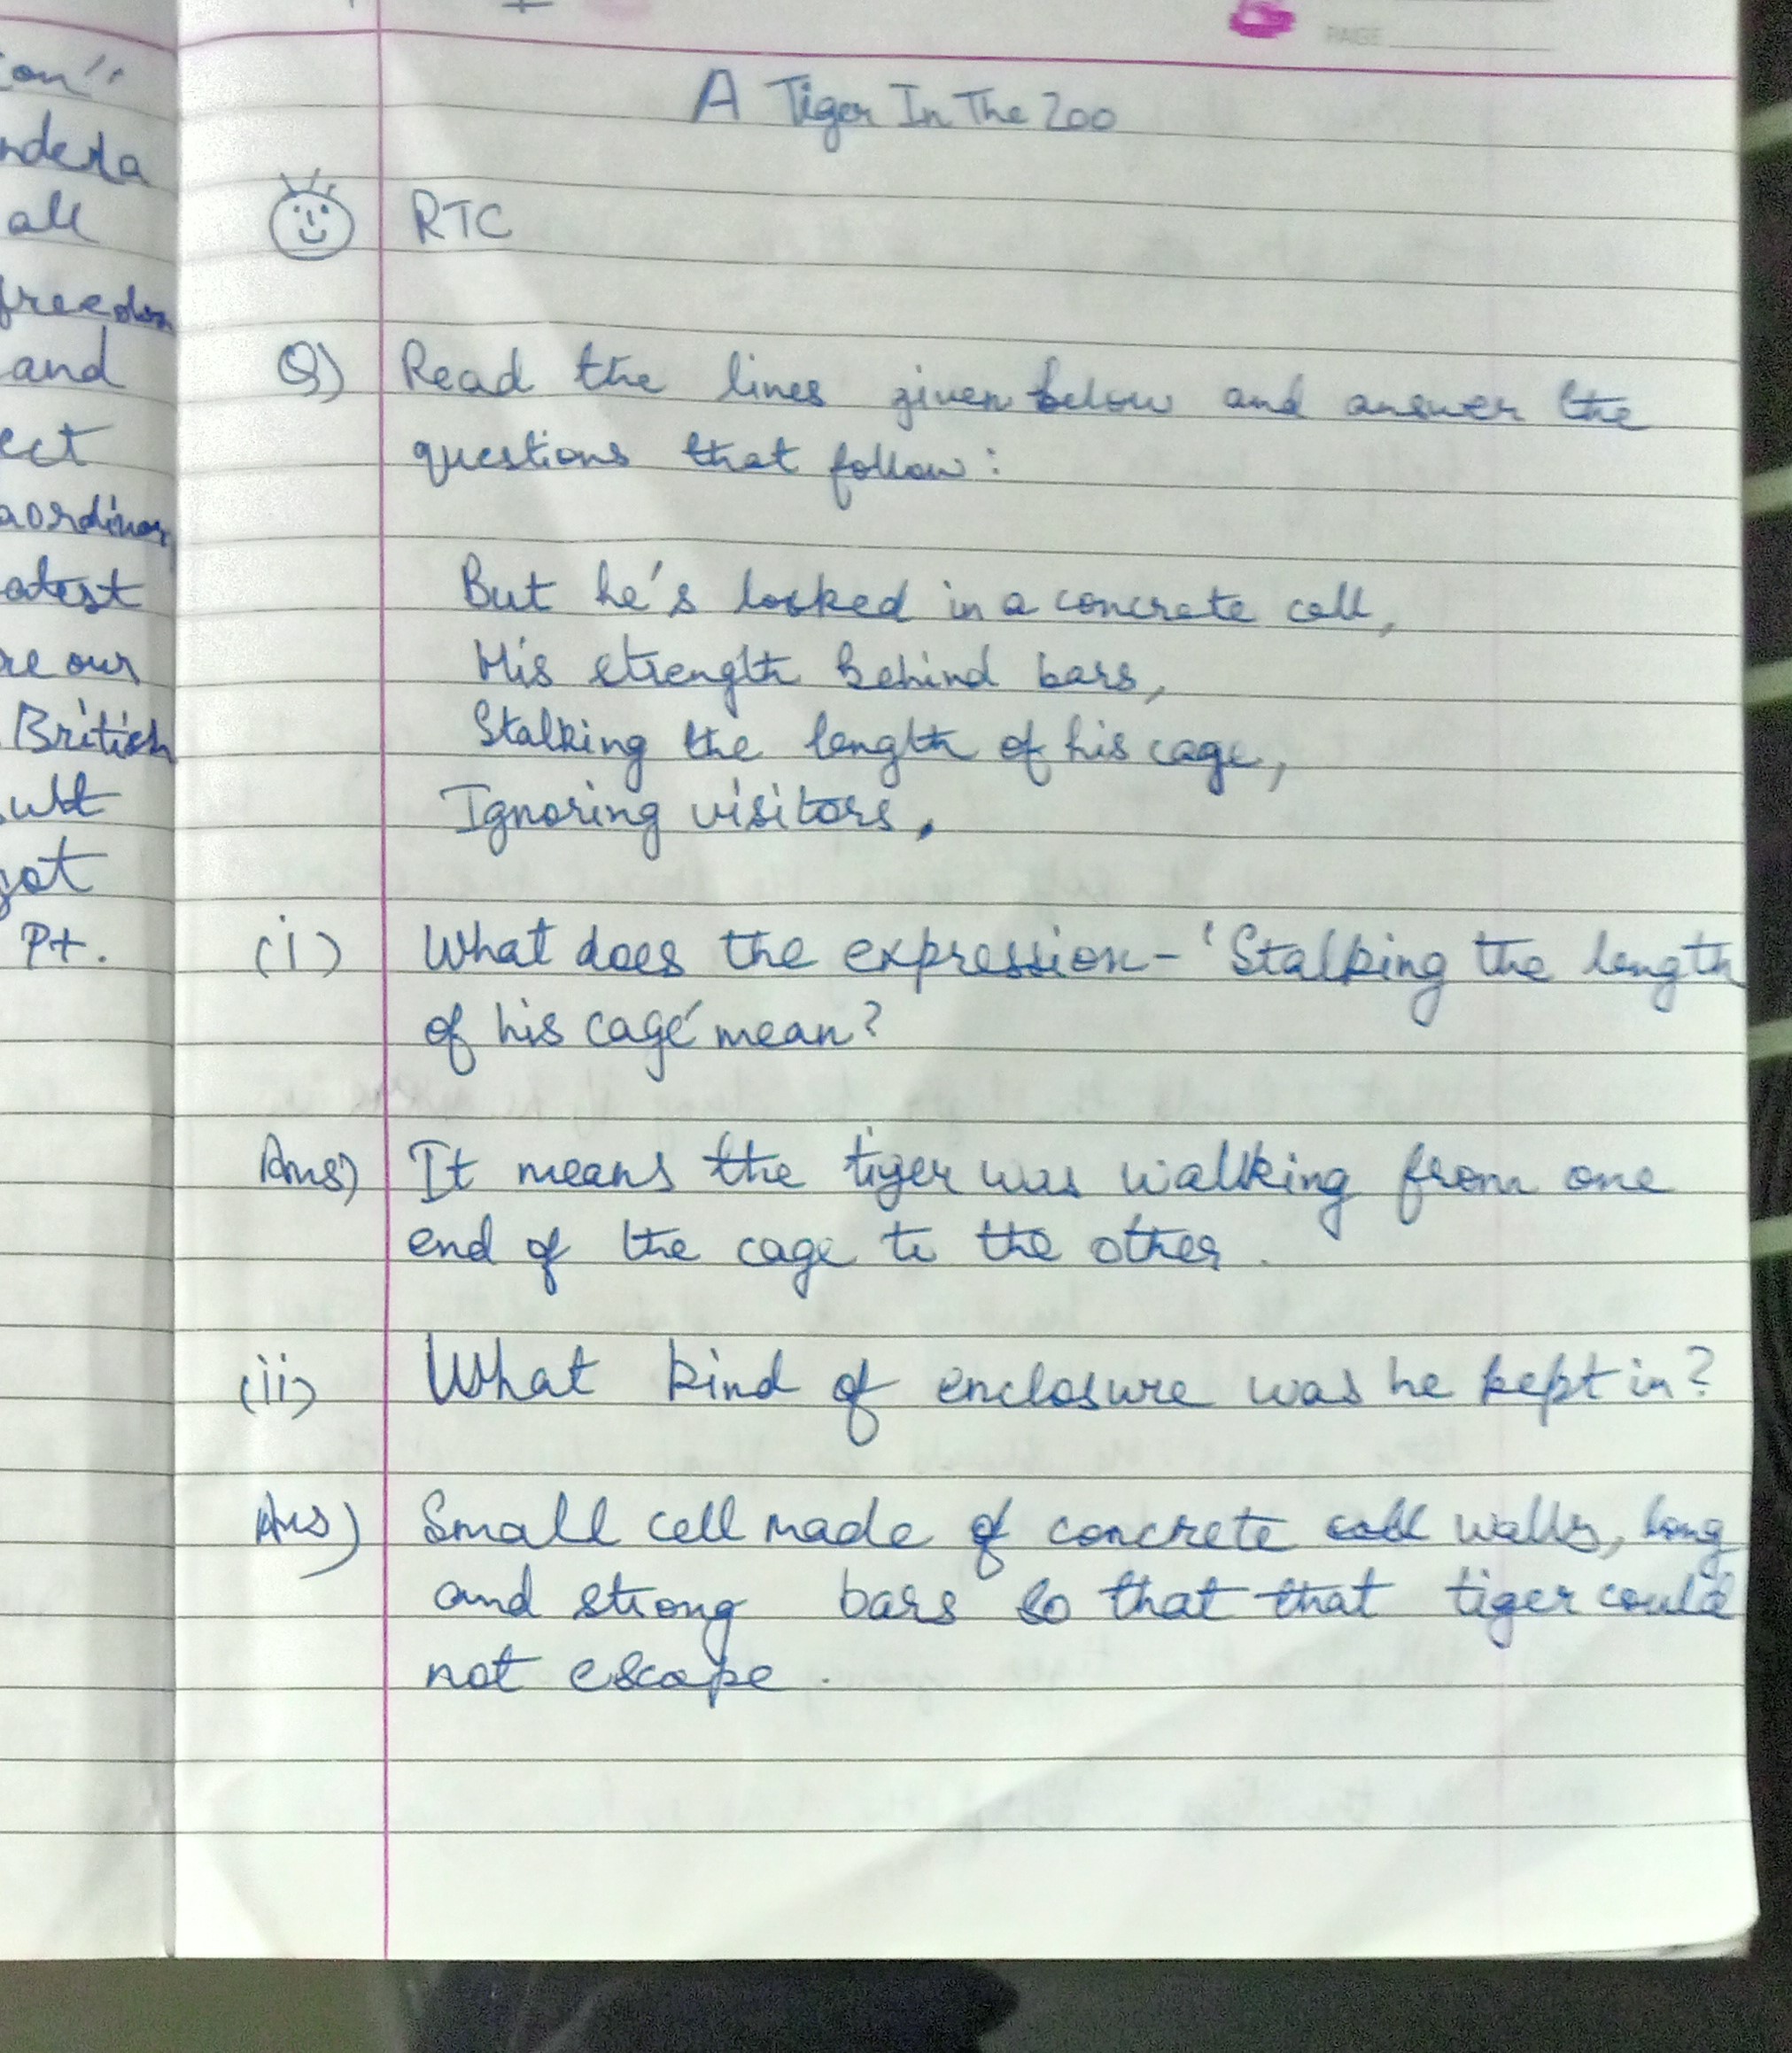 on"
ndela
all
freedom
and
ect
aordinary
atest
re our
British
ult
got
Pt.
PAGE
A Tiger In The Zoo
RTC
Q) Read the lines given below and answer the
questions that follow:
But he's locked in a concrete cell,
His strength behind bars,
Stalking the length of his cage,
Ignoring visitors.
(i) What does the expression - 'Stalking the length
of his cage' mean?
Ans) It means the tiger was walking from one
end of the cage to the other.
(ii) What kind of enclosure was he kept in?
Ans) Small cell made of concrete cell walls, long
and strong bars so that that tiger could
not escape.